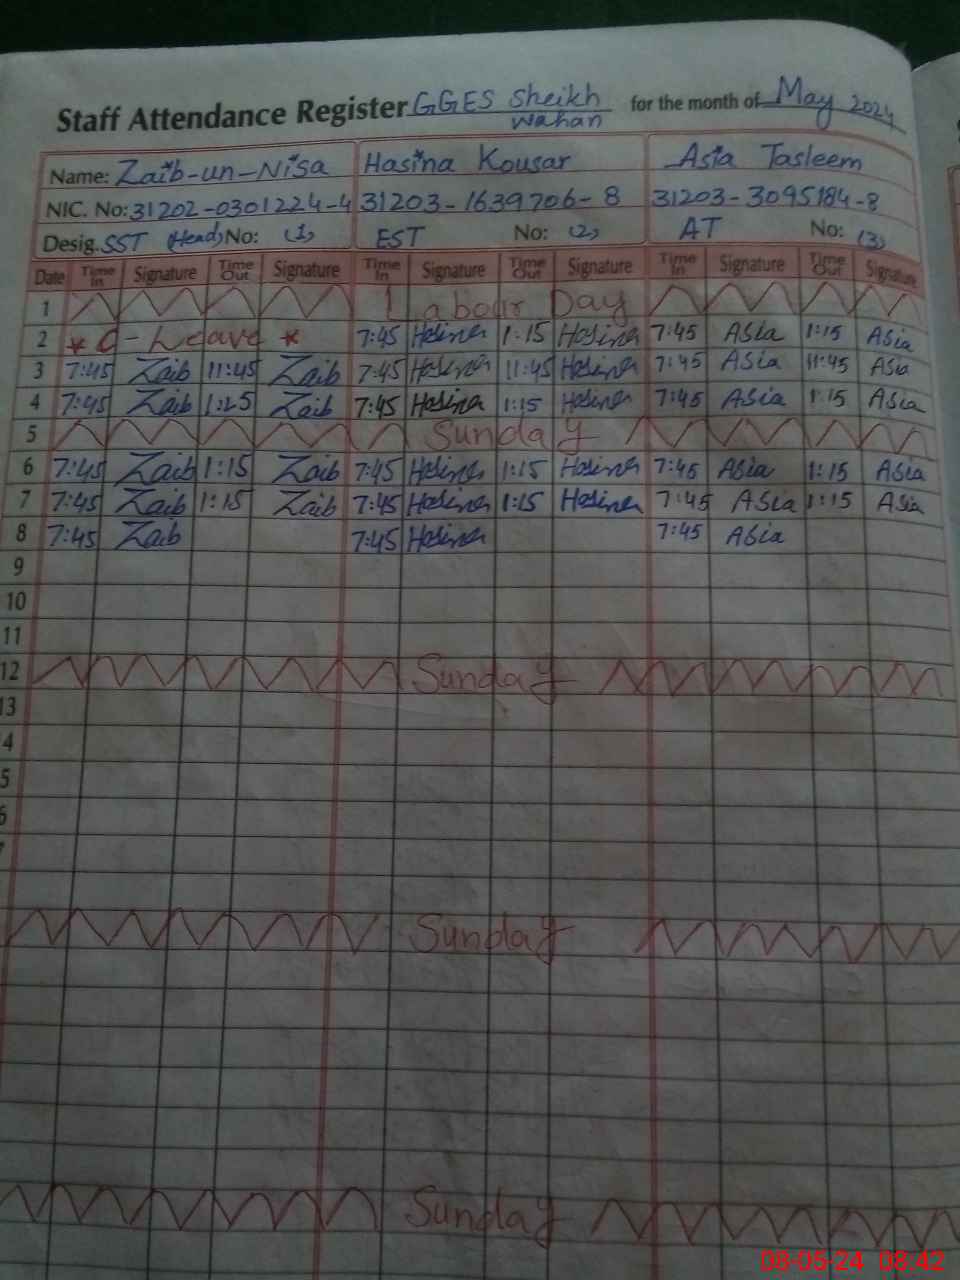 Staff Attendance Register GGES Sheikh Wahan for the month of May 2024
Name: Zaib-un-Nisa Hasina Kousar Asia Tasleem
NIC. No: 31202-0301224-4 31203-1639706-8 31203-3095184-8
Desig. SST (Head) No: (1) EST No: (2) AT No: (3)
Date Time In Signature Time Out Signature Time In Signature Time Out Signature Time In Signature Time Out Signature
1 Labour Day
2 * C-Leave * 7:45 Hasina 1:15 Hasina 7:45 Asia 1:15 Asia
3 7:45 Zaib 11:45 Zaib 7:45 Hasina 11:45 Hasina 7:45 Asia 11:45 Asia
4 7:45 Zaib 1:25 Zaib 7:45 Hasina 1:15 Hasina 7:45 Asia 1:15 Asia
5 Sunday
6 7:45 Zaib 1:15 Zaib 7:45 Hasina 1:15 Hasina 7:45 Asia 1:15 Asia
7 7:45 Zaib 1:15 Zaib 7:45 Hasina 1:15 Hasina 7:45 Asia 1:15 Asia
8 7:45 Zaib 7:45 Hasina 7:45 Asia
9
10
11
12 Sunday
13
4
5
6
Sunday
Sunday
08-05-24 08:42